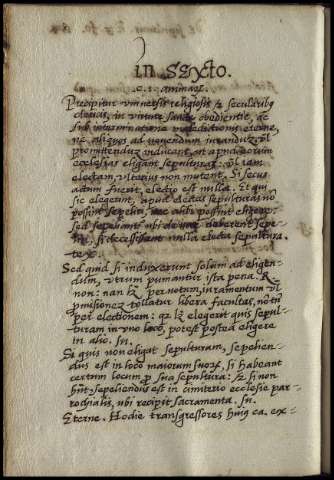 in Sexto.
c. 1. animar.
Precipitur universis religiosis & secularibus
clericis, in virtute sancte obedientie, ac
sub interminatione maledictionis eterne,
ne aliquos ad vovendum iurandum vl
promittendum inducant, ut apud eorum
ecclesias eligant sepulturas: vl iam
electam, ulterius non mutent. Si secus
actum fuerit, electio est nulla. Et qui
sic elegerint, apud electas sepulturas no
possint sepeliri, nec alibi possint
sed sepeliantur ubi de iure deberent sepe=
liri, si decessissent nulla electa sepultura.
tex.
Sed quid si induxerunt solum ad eligen=
dum, utrum puniantur ista pena. R.
non: nam hz per votum, iuramentum vl
promissionez tollatur libera facultas, no tn
per electionem: qz lz elegerit quis sepul=
turam in uno loco, potest postea eligere
in alio. Sn.
Si quis non eligat sepulturam, sepelien=
dus est in loco maiorum suorz, si habeant
certum locum p sua sepultura: & si non
hnt, sepeliendus est in cimiterio ecclesie par=
rochialis, ubi recipit sacramenta. Sn.
Eterne. Hodie transgressores huius ca. ex=